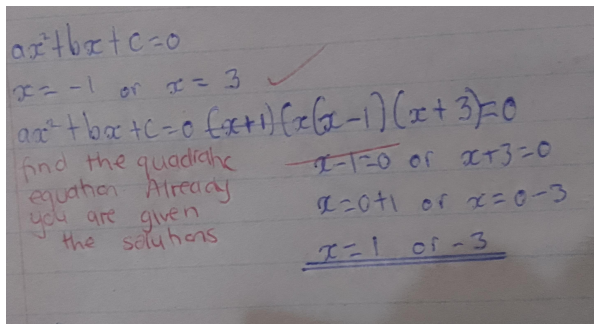 ax²+bx+c=0
x = -1 or x = 3
ax²+bx+c=0 (-x+1)(x(x-1)(x+3)=0
find the quadratic
equation Already
you are given
the solutions
x-1=0 or x+3=0
x=0+1 or x=0-3
x=1 or -3